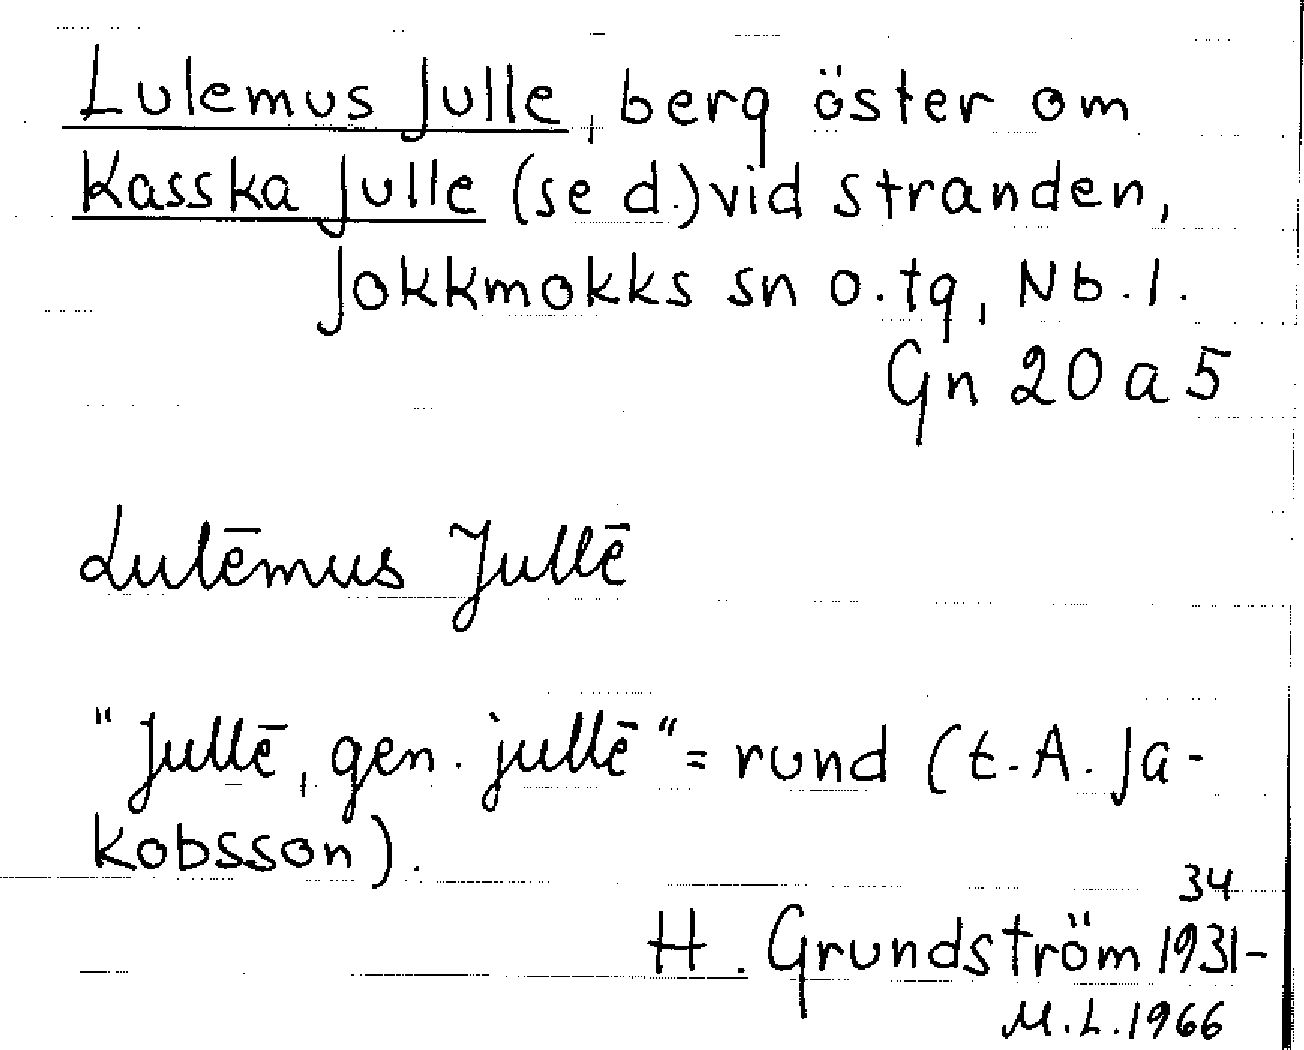 Lulemus Julle, berg öster om
Kasska Julle (se d.) vid stranden,
Jokkmokks sn o. tg, Nb. l.
Gn 20 a 5
Lulēmus Jullē
"Jullē, gen. jullē" = rund (t. A. Ja-
kobsson).
H. Grundström 1931-34
M.L. 1966